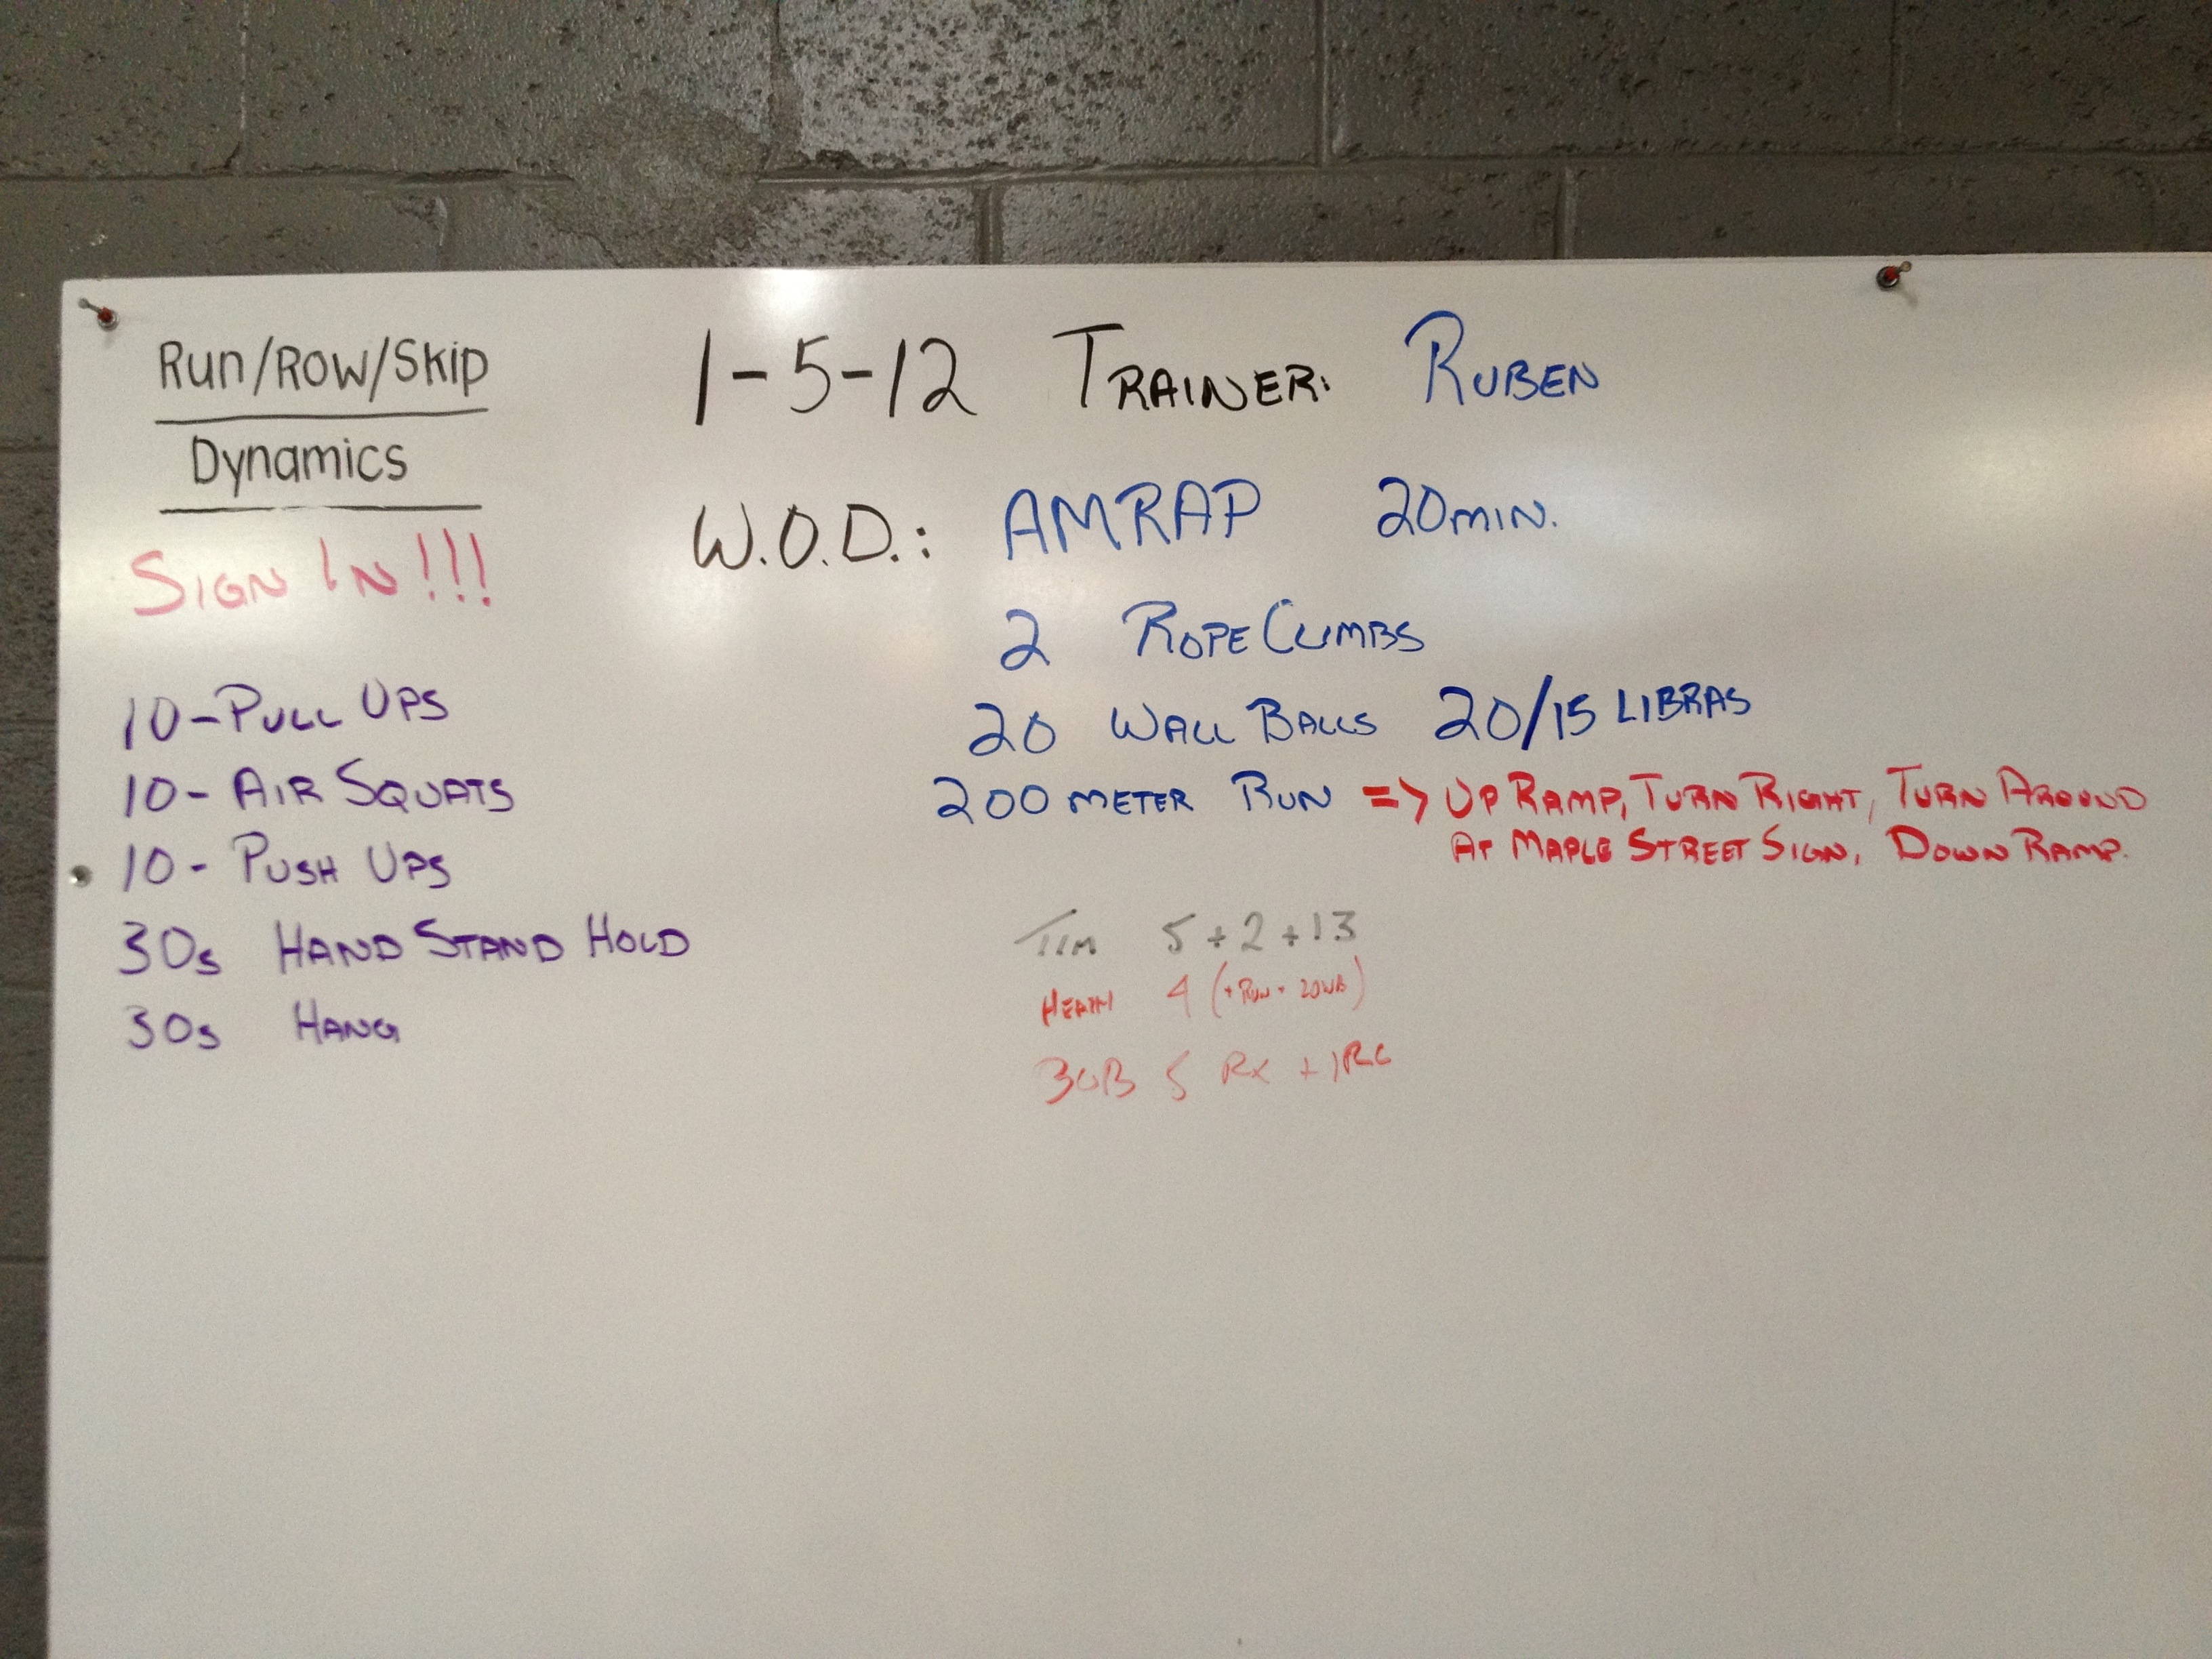 Run/Row/Skip
Dynamics
SIGN IN!!!
10-PULL UPS
10- AIR SQUATS
10- PUSH UPS
30s HAND STAND HOLD
30s HANG
1-5-12 TRAINER: RUBEN
W.O.D.: AMRAP 20MIN.
2 ROPE CLIMBS
20 WALL BALLS 20/15 LIBRAS
200 METER RUN => UP RAMP, TURN RIGHT, TURN AROUND
AT MAPLE STREET SIGN, DOWN RAMP.
TIM 5+2+13
4 (+RUN + 20WB)
5 RX + 1RC